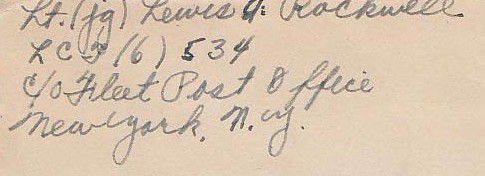 Lt. (jg) Lewis H. Rockwell
LCT (6) 534
c/o Fleet Post Office
New York, N.Y.